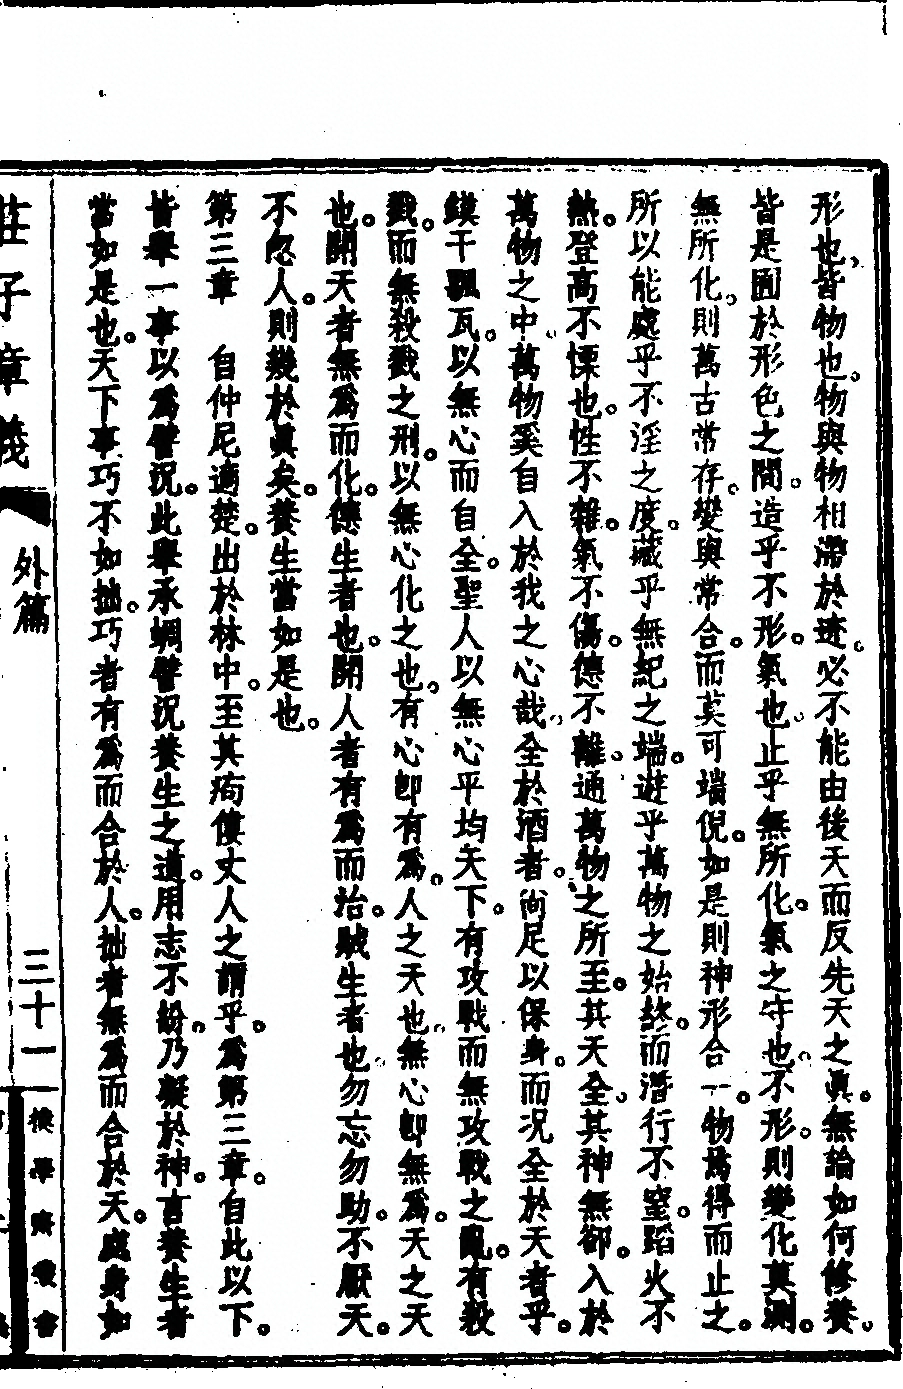 形也皆物也。物與物相滯於迹。必不能由後天而反先天之眞。無論如何修養。
皆是囿於形色之間。造乎不形。氣也。止乎無所化。氣之守也。不形。則變化莫測。
無所化。則萬古常存。變與常合。而莫可端倪。如是則神形合一。物焉得而止之。
所以能處乎不淫之度。藏乎無紀之端。遊乎萬物之始終。而潛行不窒。蹈火不
熱。登高不慄也。性不雜。氣不傷。德不離。通萬物之所至。其天全。其神無郤。入於
萬物之中。萬物奚自入於我之心哉。全於酒者。尚足以保身。而况全於天者乎。
鏌干飄瓦。以無心而自全。聖人以無心平均天下。有攻戰而無攻戰之亂。有殺
戮。而無殺戮之刑。以無心化之也。有心卽有爲。人之天也。無心卽無爲。天之天
也。開天者無爲而化。德生者也。開人者有爲而治。賊生者也。勿忘勿助。不厭天。
不忽人。則幾於眞矣。養生當如是也。
第三章　自仲尼適楚。出於林中。至其痀僂丈人之謂乎。爲第三章。自此以下。
皆舉一事以爲譬況。此舉承蜩譬況養生之道。用志不紛。乃凝於神。言養生者
當如是也。天下事巧不如拙。巧者有爲而合於人。拙者無爲而合於天。處身如
莊子章義
外篇
三十一
樸學齋叢書